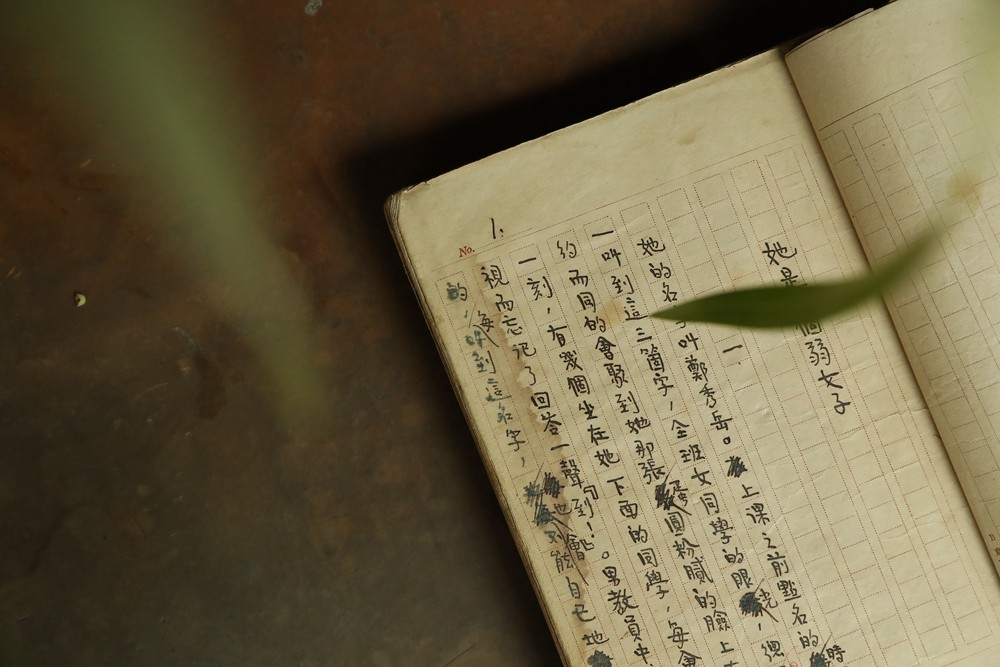 No. 1.
她是 個弱女子
一.
她的名字叫鄭秀岳。上課之前點名的時
一叫到這三箇字，全班女同學的眼 ，總
約而同的會聚到她那張蛋圓粉膩的臉上
一刻，有幾個坐在她下面的同學，每會
視而忘記了回答一聲“到！”。男教員中
的，每叫到這名字， 能自已地